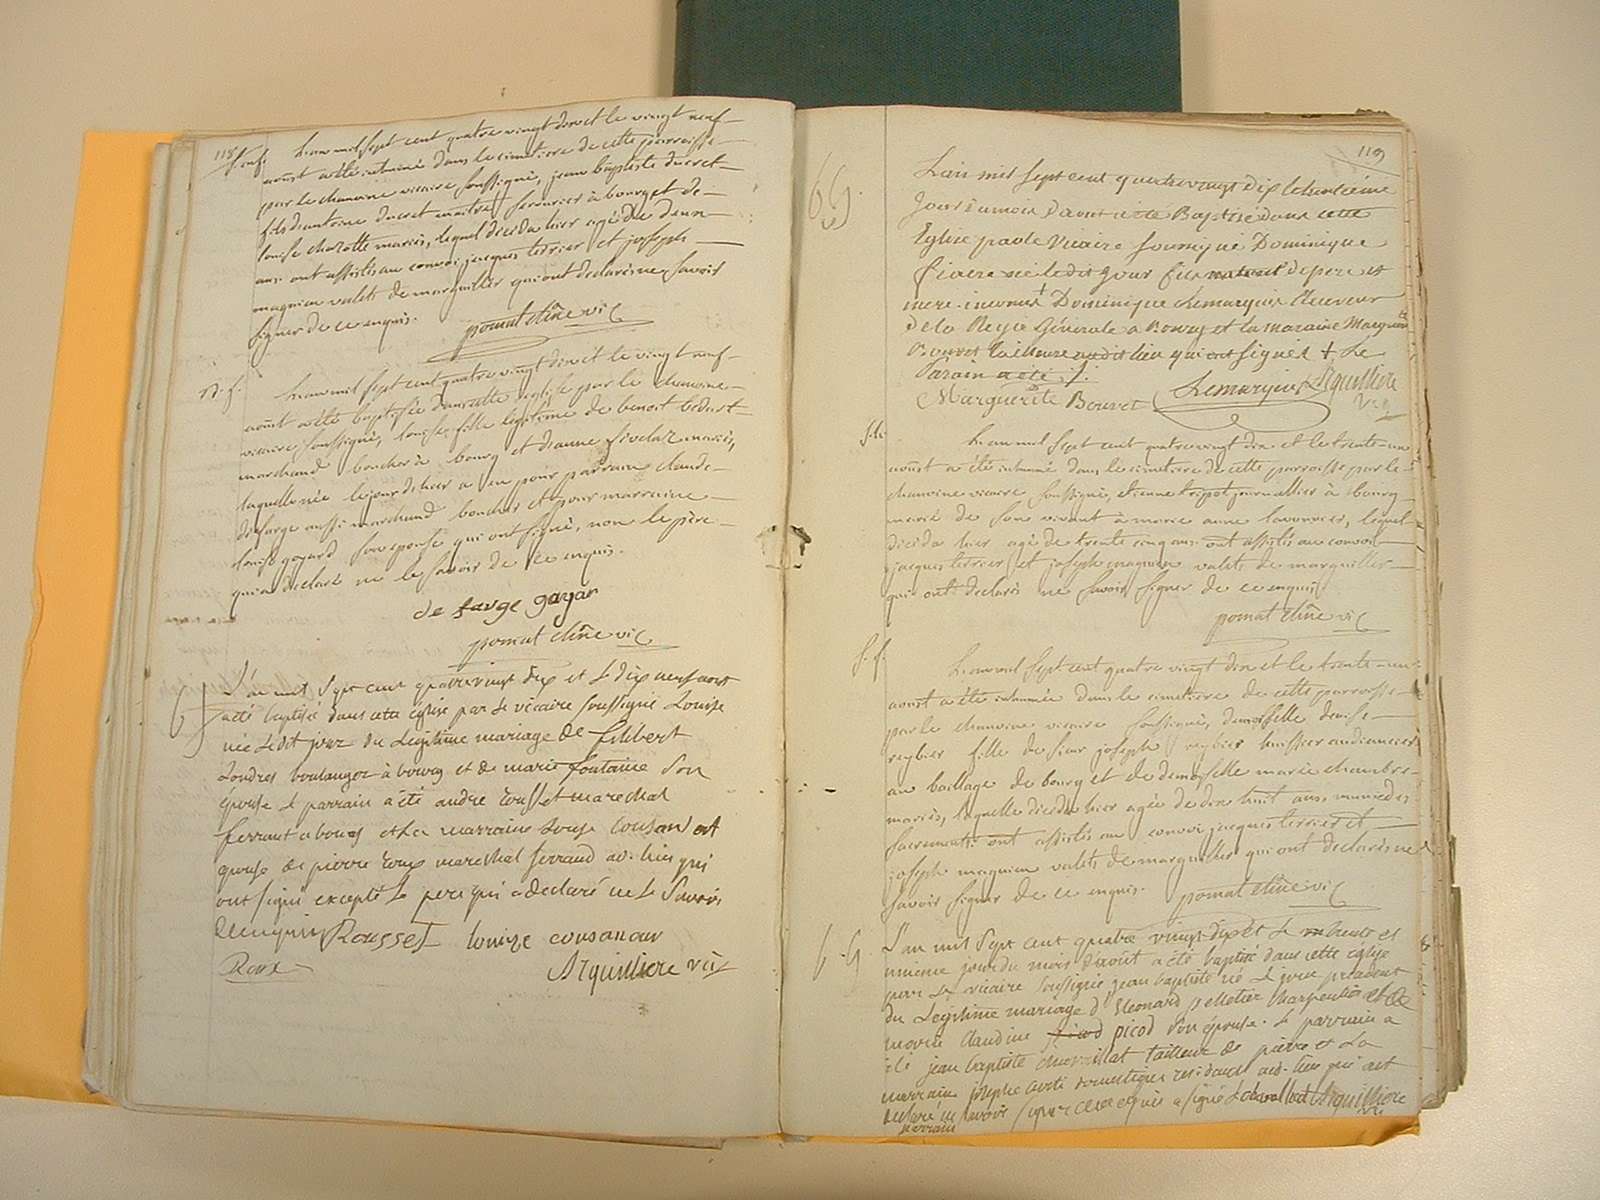 118
S. enf. L'an mil sept cent quatre vingt dix et le vingt neuf
aoust a été inhumé dans le cimetiere de cette parroisse
par le chanoine vicaire soussigné, jean baptiste ducret
fils d'antoine ducret maitre serrurier à bourg et de
louise charlotte mariés, lequel décéda hier agé de deux
ans. ont assistés au convoi jacques terrier et joseph
magnien valets de marguillier qui ont declarés ne savoir
signer de ce enquis.
pomat chne vic
B. f. L'an mil sept cent quatre vingt dix et le vingt neuf
aoust a été baptisée dans cette eglise par le chanoine
vicaire soussigné, louise fille legitime de benoit
marchand boucher à bourg et d'anne mariés,
laquelle née le jour d'hier a eu pour parrain claude
defarge aussi marchand boucher et pour marraine
louise goyard son epouse qui ont signé, non le père
qui a declaré ne le savoir de ce enquis.
de farge gayar
pomat chne vic
L'an mil sept cent quatre vingt dix et le dix neuf aout
a été baptisée dans cette eglise par le vicaire soussigné Louise
née le dit jour du Legitime mariage de filibert
Londres boulanger à bourg et de marie fontaine son
épouse le parrain a été andre rousset marechal
ferrant a bourg et la marraine Louise cousan
epouse de pierre roux marechal ferrand au. lieu qui
ont signé excepté le pere qui a declaré ne le Savoir
de enquis Rousset louize cousanour
Roux Arquilliere vic
119
B G. L'an mil sept cent quatre vingt dix le trentième
jour du mois d'aout a été Baptisé dans cette
Eglise par le Vicaire soussigné Dominique
né le dit jour fils naturel de pere et
mere inconnus + Dominique Lemarquis Receveur
de la Regie Générale a Bourg et la maraine Marguerite
Bouvet tailleuse audit lieu qui ont signés + Le
Parain a été
Marguerite Bouvet Lemarquis Arquilliere
Vic
L'an mil sept cent quatre vingt dix et le trente un
aoust a été inhumé dans le cimetiere de cette parroisse par le
chanoine vicaire soussigné, etienne tripot journallier à bourg
marié de son vivant à marie anne lavouvier, lequel
décéda hier agé de trente cinq ans. ont assistés au convoi
jacques terrier et joseph magnien valets de marguillier
qui ont declarés ne savoir signer de ce enquis
pomat chne vic
S. f. L'an mil sept cent quatre vingt dix et le trente un
aoust a été inhumée dans le cimetiere de cette parroisse
par le chanoine vicaire soussigné, demoiselle denise
reybier fille de sieur joseph reybier huissier audiencier
au baillage de bourg et de demoiselle marie chambre
mariés, laquelle décéda hier agée de dix huit ans, munie des
sacrements. ont assistés au convoi jacques terrier et
joseph magnien valets de marguillier qui ont declarés ne
savoir signer de ce enquis. pomat chne vic
B. G. L'an mil sept cent quatre vingt dix et le trente et
unieme jour du mois d'aoùt a été baptisé dans cette église
par le vicaire soussigné jean baptiste né le jour precedent
du Legitime mariage d'Eleonard pelletier charpentier et de
marie claudine picod son épouse. Le parrain a
été jean baptiste chevaillat tailleur de pierre et La
marraine josephe domestique residante aud. lieu qui ont
declaré ne savoir signer de ce enquis a signé Arquilliere
parrain vic